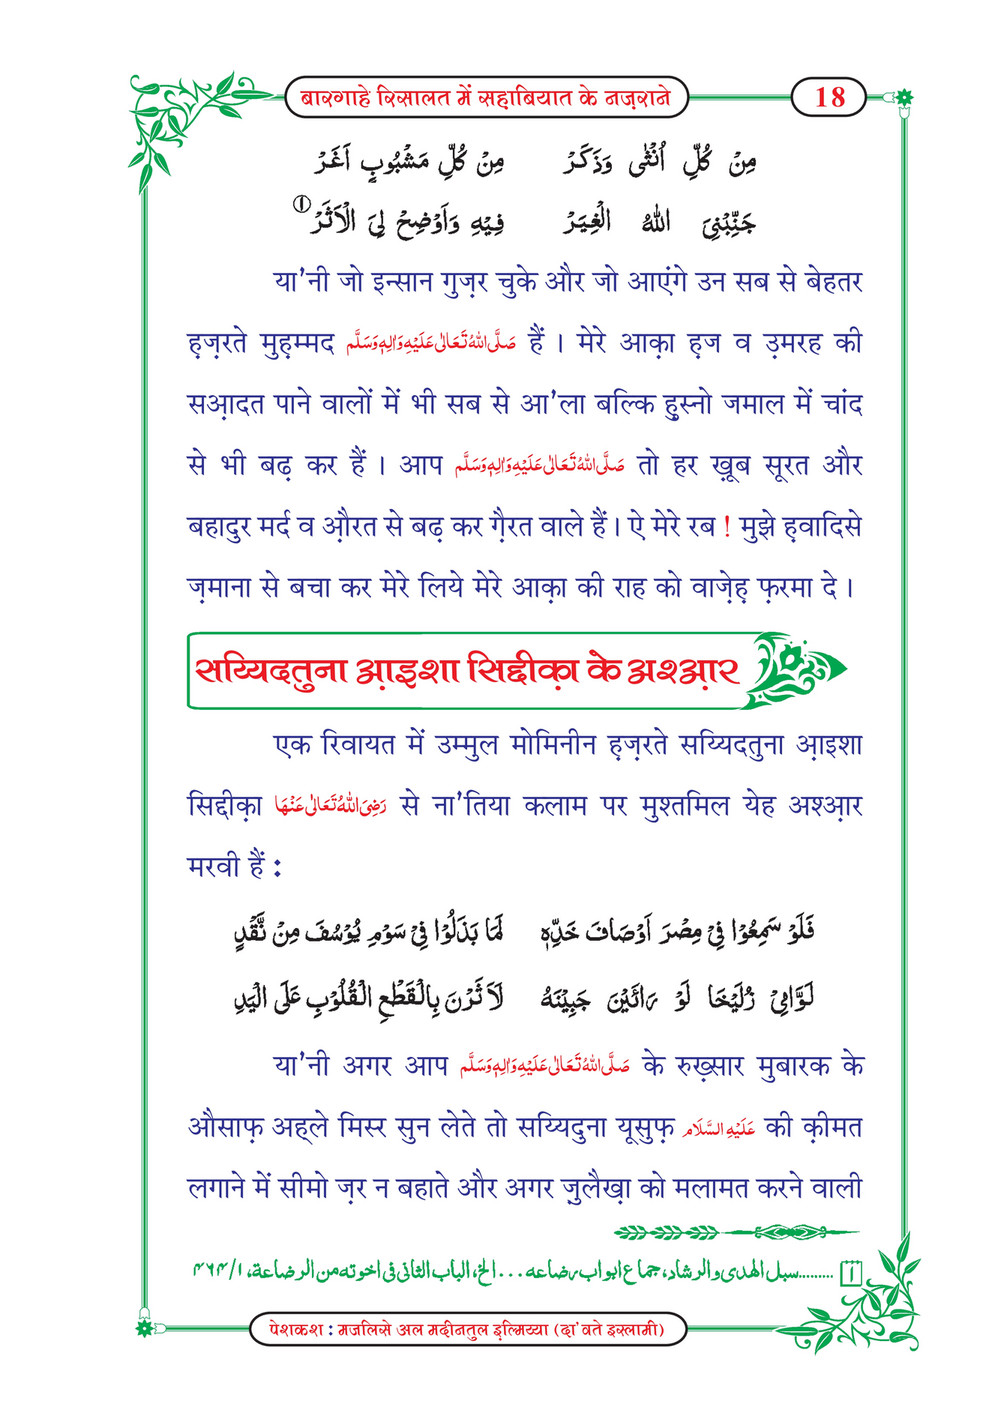 बारगाहे रिसालत में सहाबियात के नज़राने 18
مِنْ كُلِّ اُنْثٰى وَذَكَرْ مِنْ كُلِّ مَشْبُوبٍ اَغَرْ
جَنِّبْنِىَ اللهُ الْغِيَرْ فِيْهِ وَاَوْضِحْ لِىَ الْاَثَرْ ①
या'नी जो इन्सान गुज़र चुके और जो आएंगे उन सब से बेहतर
ह़ज़रते मुह़म्मद صَلَّى اللهُ تَعَالٰى عَلَيْهِ وَاٰلِهٖ وَسَلَّم हैं। मेरे आक़ा ह़ज व उ़मरह की
सआ़दत पाने वालों में भी सब से आ'ला बल्कि हु़स्नो जमाल में चांद
से भी बढ़ कर हैं। आप صَلَّى اللهُ تَعَالٰى عَلَيْهِ وَاٰلِهٖ وَسَلَّم तो हर ख़ूब सूरत और
बहादुर मर्द व औ़रत से बढ़ कर ग़ैरत वाले हैं। ऐ मेरे रब ! मुझे ह़वादिसे
ज़माना से बचा कर मेरे लिये मेरे आक़ा की राह को वाजे़ह़ फ़रमा दे।
सय्यिदतुना आ़इशा सिद्दीक़ा के अश्आ़र
एक रिवायत में उम्मुल मोमिनीन ह़ज़रते सय्यिदतुना आ़इशा
सिद्दीक़ा رَضِىَ اللهُ تَعَالٰى عَنْهَا से ना'तिया कलाम पर मुश्तमिल येह अश्आ़र
मरवी हैं :
فَلَوْ سَمِعُوْا فِىْ مِصْرَ اَوْصَافَ خَدِّهٖ لَمَا بَذَلُوْا فِىْ سَوْمِ يُوْسُفَ مِنْ نَّقْدٍ
لَوَّامِىْ زُلَيْخَا لَوْ رَائَيْنَ جَبِيْنَهٗ لَاَثَرْنَ بِالْقَطْعِ الْقُلُوْبِ عَلَى الْيَدِ
या'नी अगर आप صَلَّى اللهُ تَعَالٰى عَلَيْهِ وَاٰلِهٖ وَسَلَّم के रुख़्सार मुबारक के
औसाफ़ अह्ले मिस्र सुन लेते तो सय्यिदुना यूसुफ़ عَلَيْهِ السَّلَام की क़ीमत
लगाने में सीमो ज़र न बहाते और अगर जु़लैख़ा को मलामत करने वाली
١ ........سبل الهدى والرشاد، جماع ابواب رضاعه...الخ، الباب الثانى فى اخوته من الرضاعة، ١/٤٦٤
पेशकश : मजलिसे अल मदीनतुल इ़ल्मिय्या (दा'वते इस्लामी)